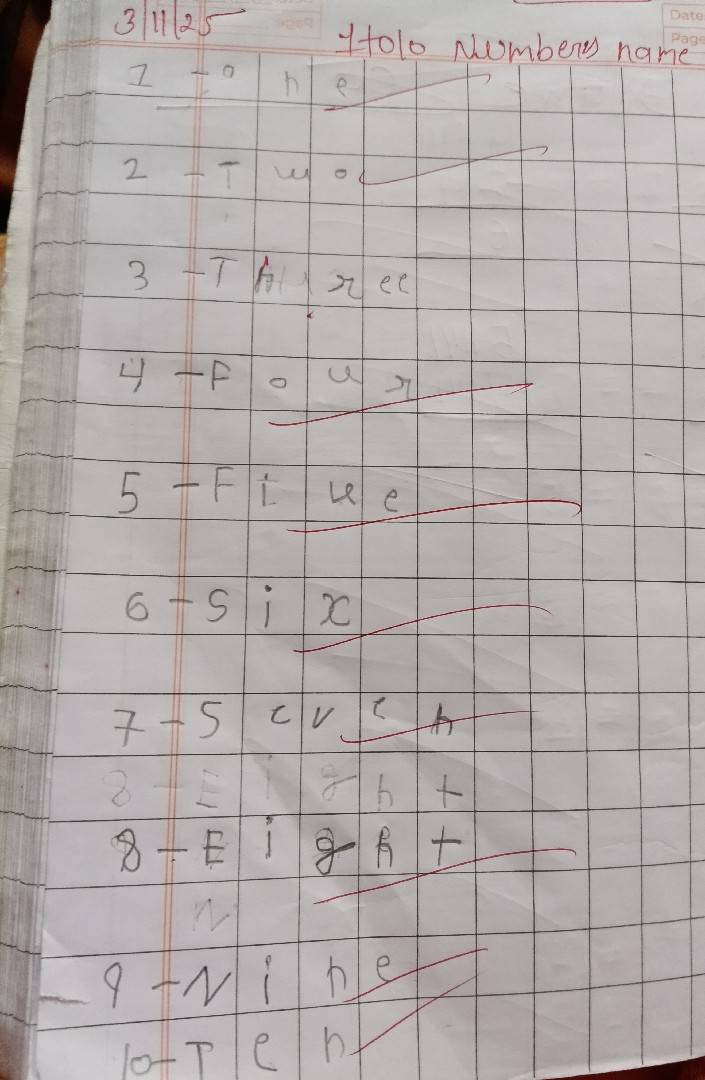 3/11/25
Date
1to10 Numbers name
Page
1 - one
2 - Two
3 - Three
4 - Four
5 - Five
6 - Six
7 - Seven
8 - Eight
8 - Eight
N
9 - Nine
10 - Ten